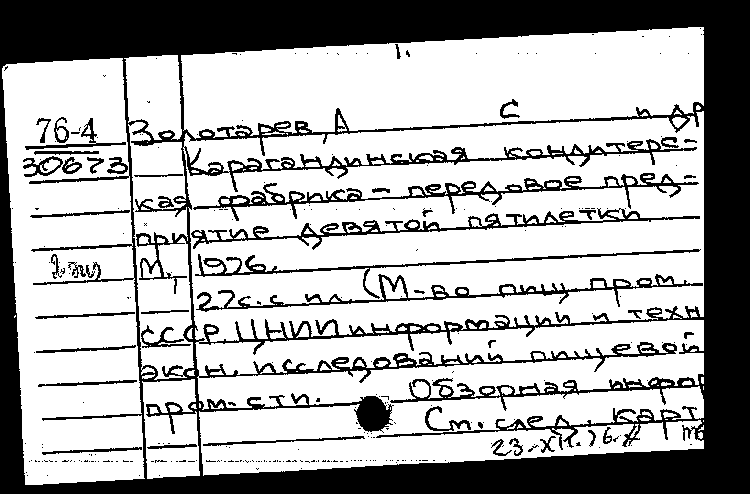 1.
76-4 Золотарев, А С и др
30673 Карагандинская кондитерс=
кая фабрика - передовое пред=
приятие девятой пятилетки
М., 1976.
27с. с ил. (М-во пищ. пром.
СССР. ЦНИИ информации и техн
экон. исследований пищевой
пром-сти. Обзорная инфор
См. след. карт
23-XII.76.